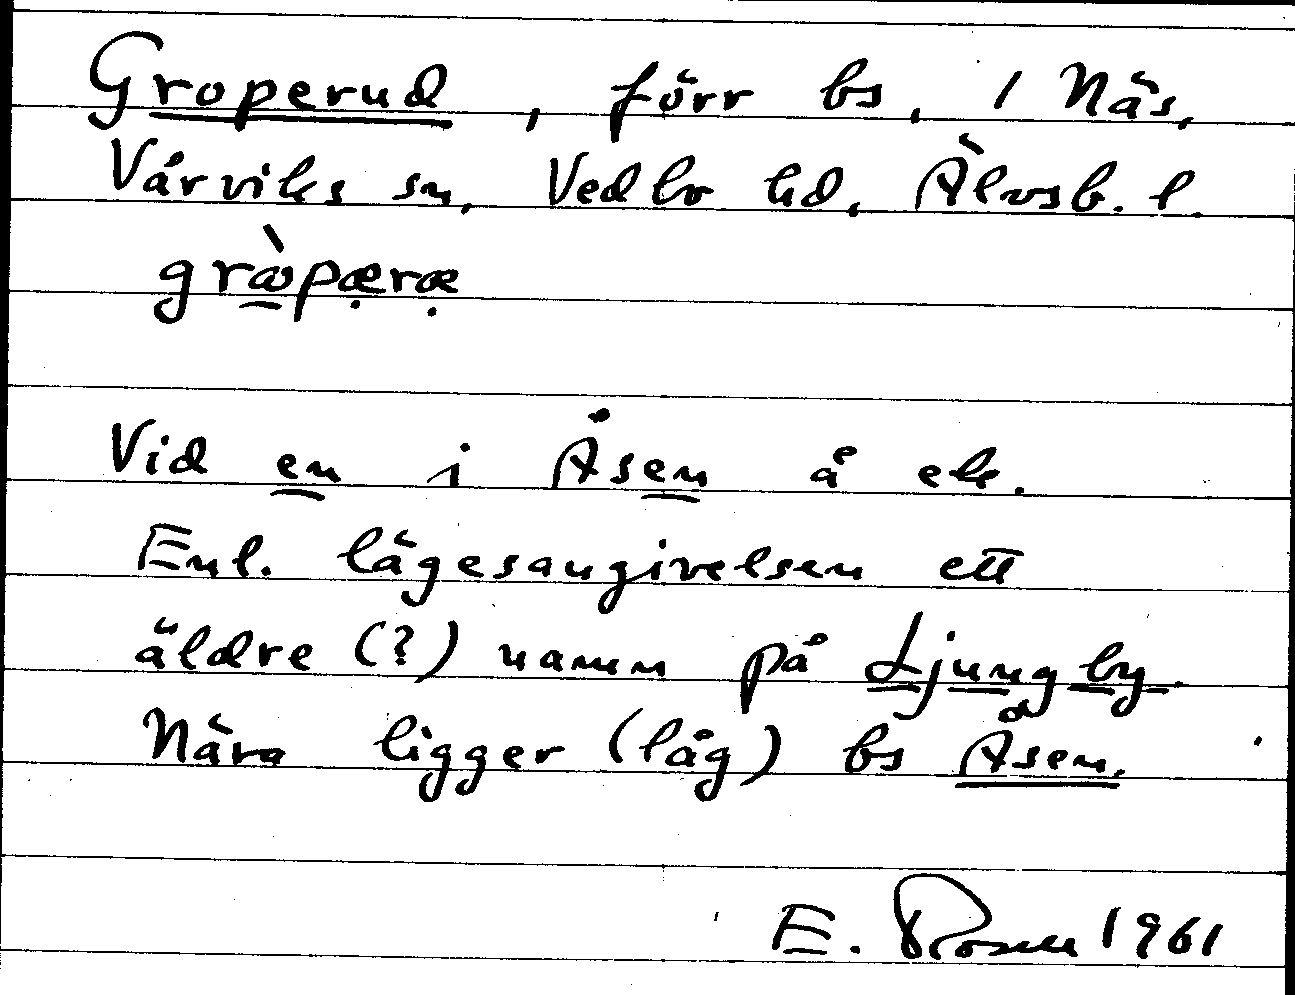 Groperud, förr bs, 1 Näs,
Vårviks sn, Vedbo hd, Älvsb. l.
grɷ̀pæræ
Vid en i Åsen å ek.
Enl. lägesangivelsen ett
äldre (?) namn på Ljungby.
Nära ligger (låg) bs Åsen.
E. Rosell 1961